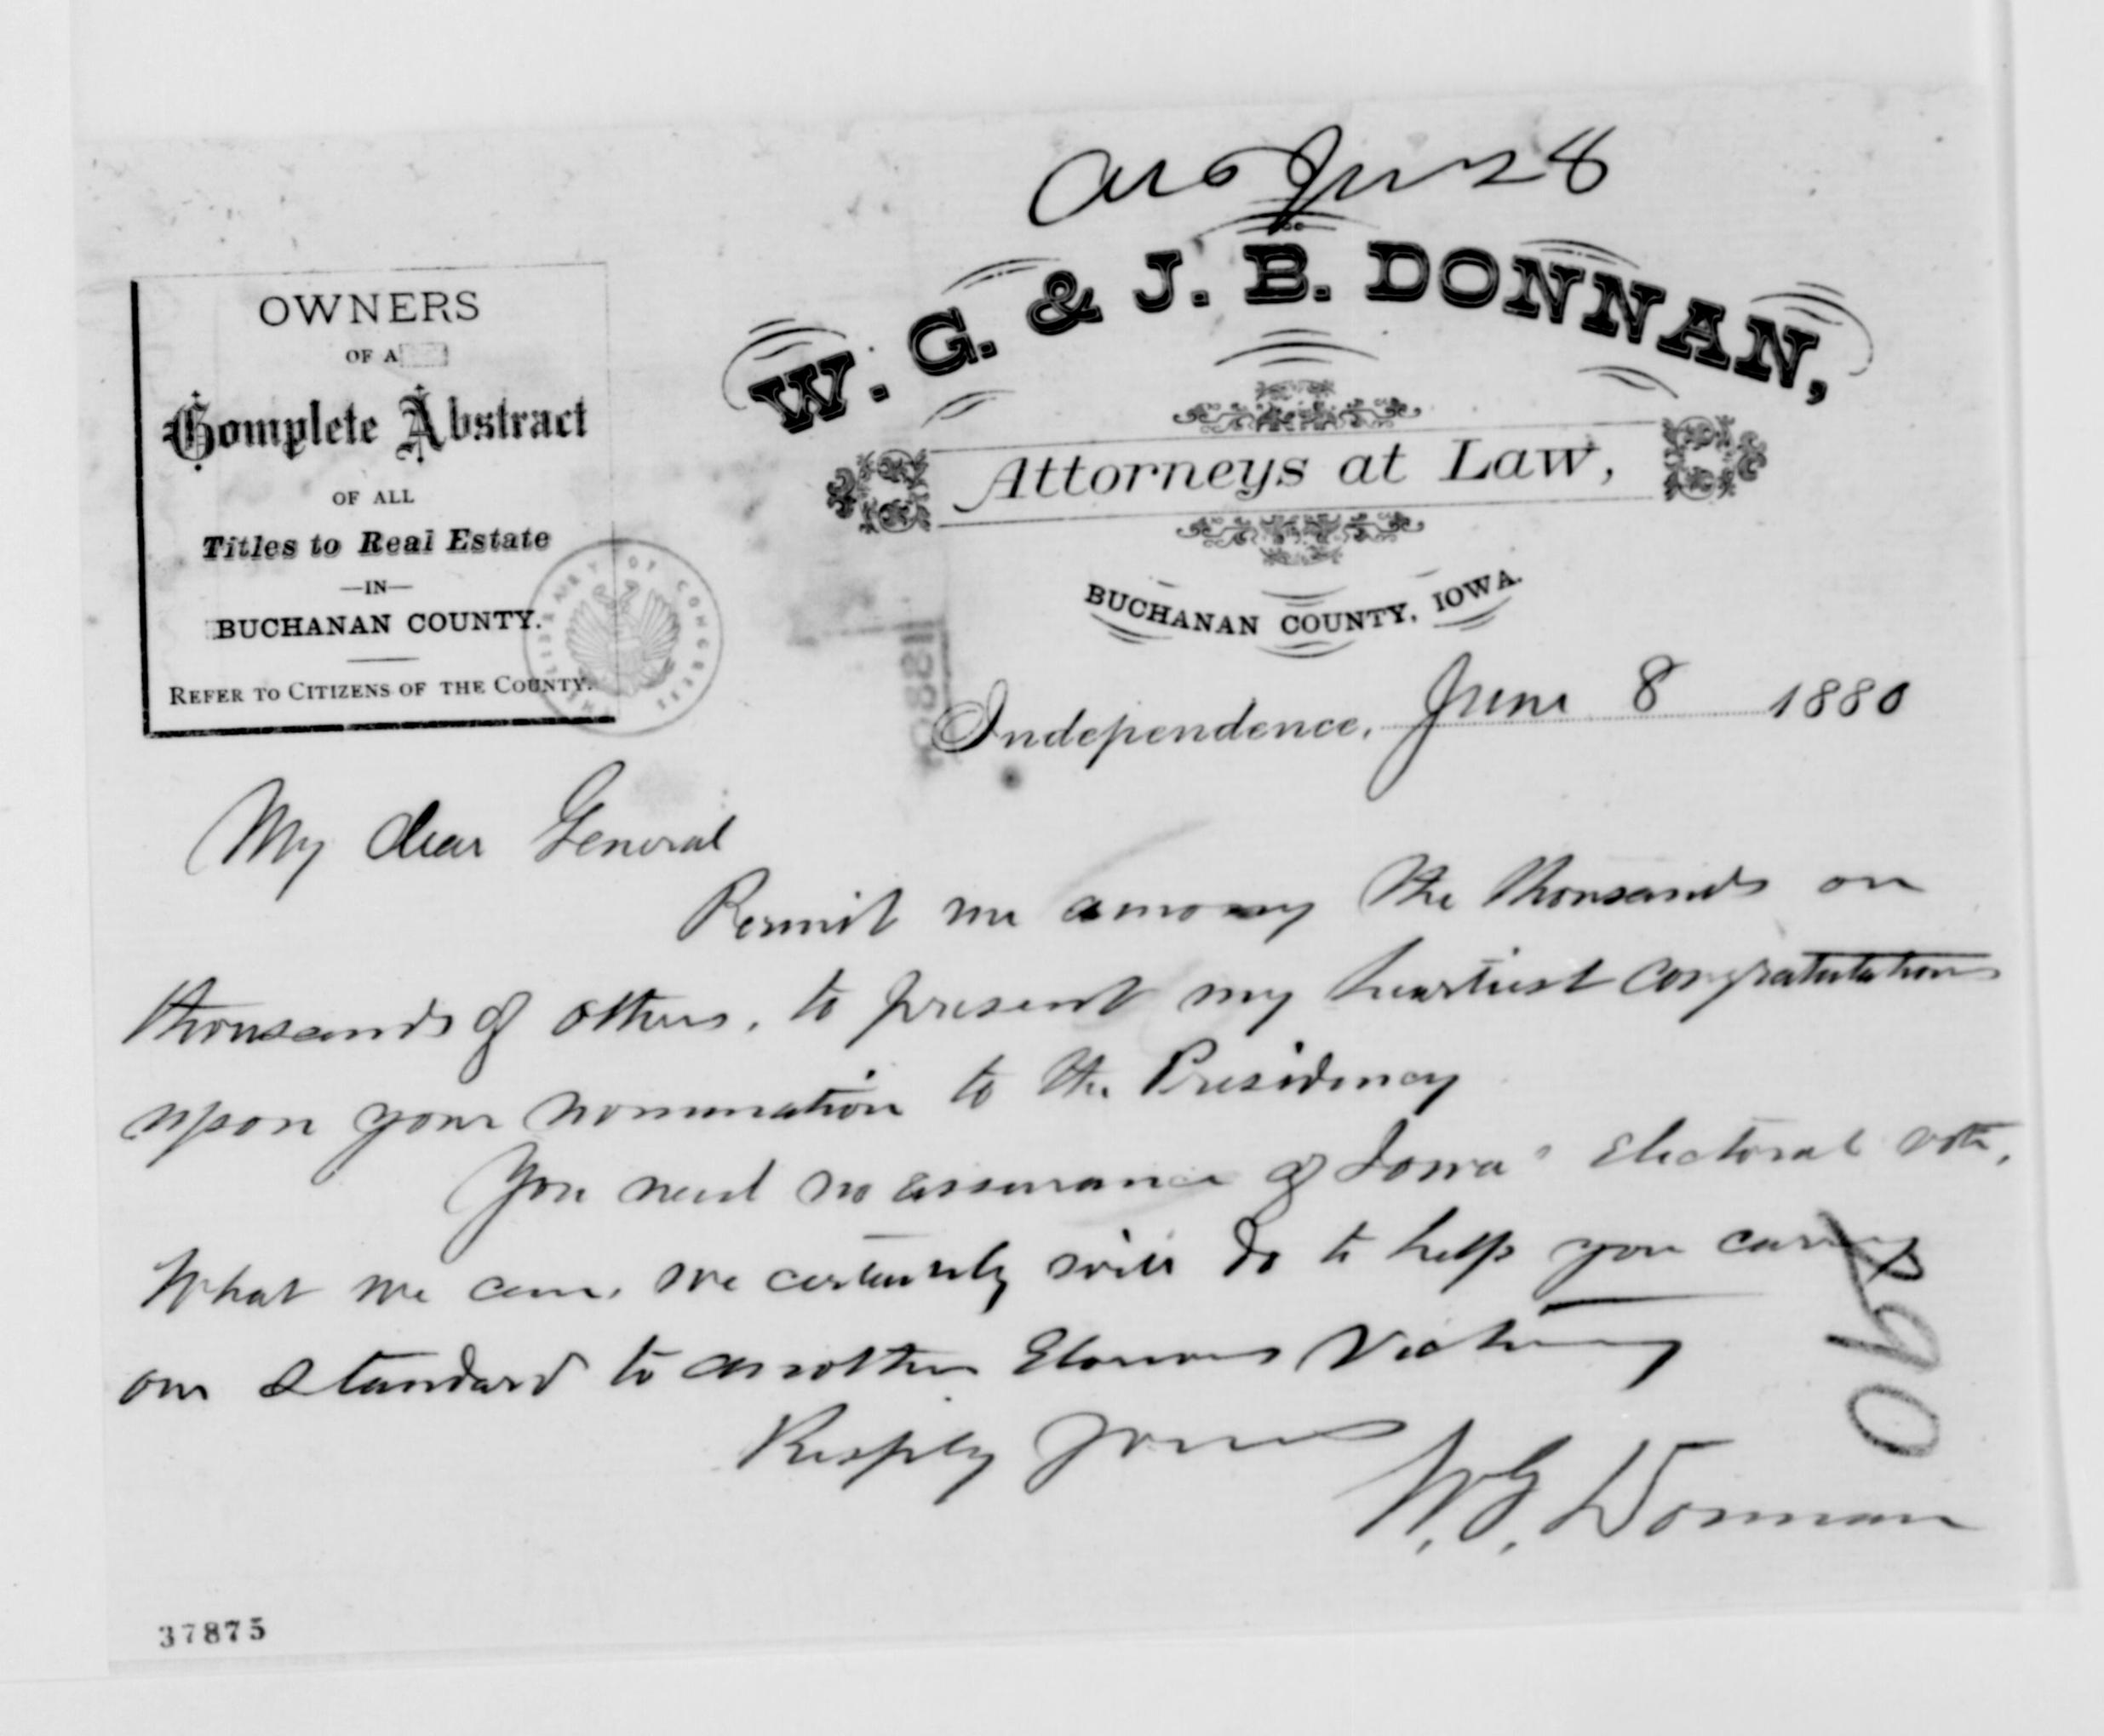 Ans Jun 28
W. G. & J. B. DONNAN,
Attorneys at Law,
BUCHANAN COUNTY, IOWA.
OWNERS
OF A
Complete Abstract
OF ALL
Titles to Real Estate
—IN—
BUCHANAN COUNTY.
REFER TO CITIZENS OF THE COUNTY.
THE LIBRARY OF CONGRESS
Independence, June 8 1880
My dear General
Permit me among the thousands on
thousands of others, to present my heartiest congratulations
upon your nomination to the Presidency
You need no assurance of Iowa's Electoral vote,
What we can, we certainly will do to help you carry
our standard to another Glorious Victory
Resply yours
W. G. Donnan
37875